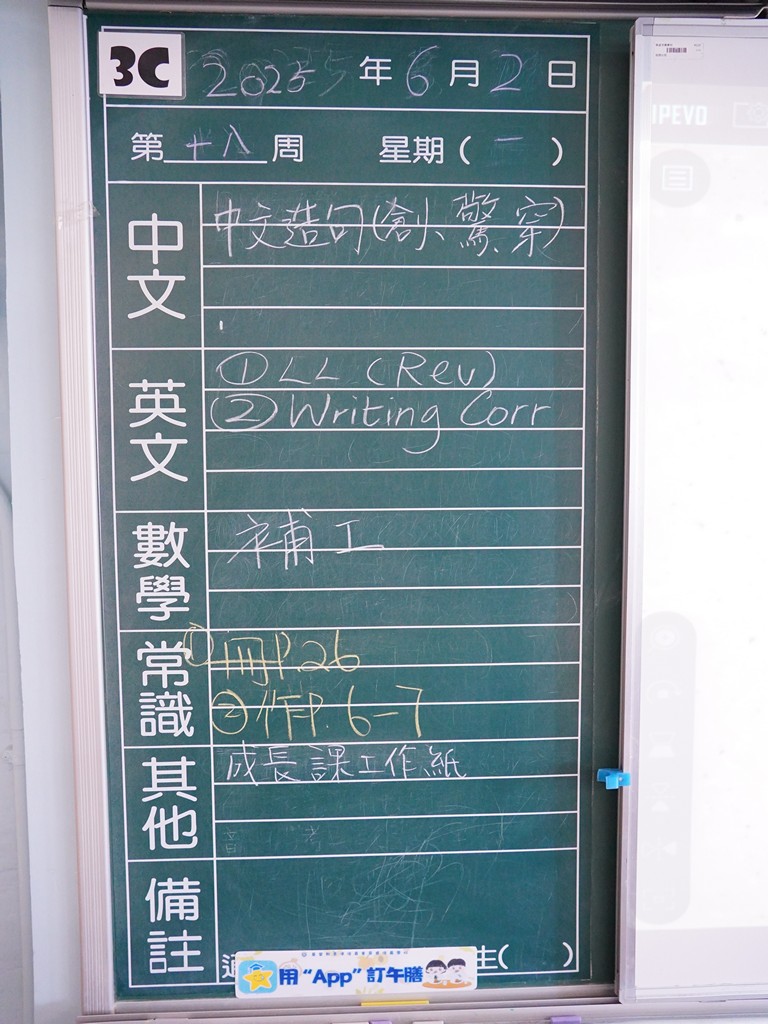 3C 2025年6月2日
第十八周 星期(一)
中文
中文造句(創、驚、穿)
英文
①LL (Rev)
②Writing Corr
數學
補工
常識
①冊P.26
②作P.6-7
其他
成長課工作紙
備註
生( )
用"App"訂午膳
IPEVO